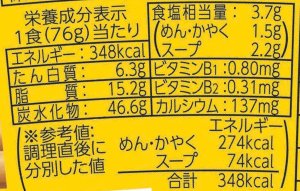 栄養成分表示
1食(76g)当たり
エネルギー:348kcal
たん白質: 6.3g
脂質: 15.2g
炭水化物: 46.6g
食塩相当量: 3.7g
(めん・かやく 1.5g
スープ 2.2g)
ビタミンB1:0.80mg
ビタミンB2:0.31mg
カルシウム:137mg
(※参考値:調理直後に分別した値)
エネルギー
めん・かやく 274kcal
スープ 74kcal
合計 348kcal